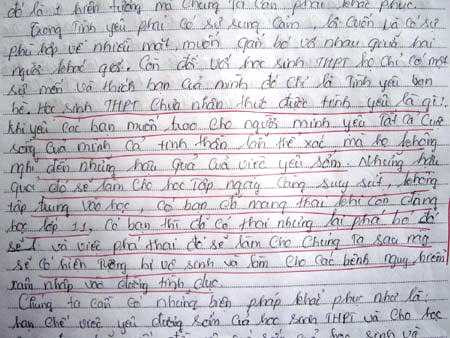 đó là 1 hiện tượng mà chúng ta cần phải khắc phục.
Trong Tình yêu phải có sự rung cảm, lôi cuốn và có sự
phù hợp về nhiều mặt, muốn gắn bó với nhau giữa hai
người khác giới. Còn đối với học sinh THPT họ chỉ có một
sự mến và thích bạn của mình đó chỉ là Tình yêu bạn
bè. Học sinh THPT chưa nhận thức được tình yêu là gì.
khi yêu các bạn muốn trao cho người mình yêu tất cả cuộc
sống của mình cả tinh thần lẫn thể xác, mà họ không
nghĩ đến những hậu quả của việc yêu sớm. Những hậu
quả đó sẽ làm cho học tập ngày càng suy sút, không
tập trung vào học, có bạn đã mang thai khi còn đang
học lớp 11, có bạn thì đã có thai nhưng lại phá bỏ đó
và việc phá thai đó sẽ làm cho chúng ta sau này
sẽ có hiện tượng bị vô sinh và làm cho các bệnh nguy hiểm
xâm nhập vào đường tình dục.
Chúng ta cần có những biện pháp khắc phục như là:
hạn chế việc yêu đương sớm của học sinh THPT và cho học